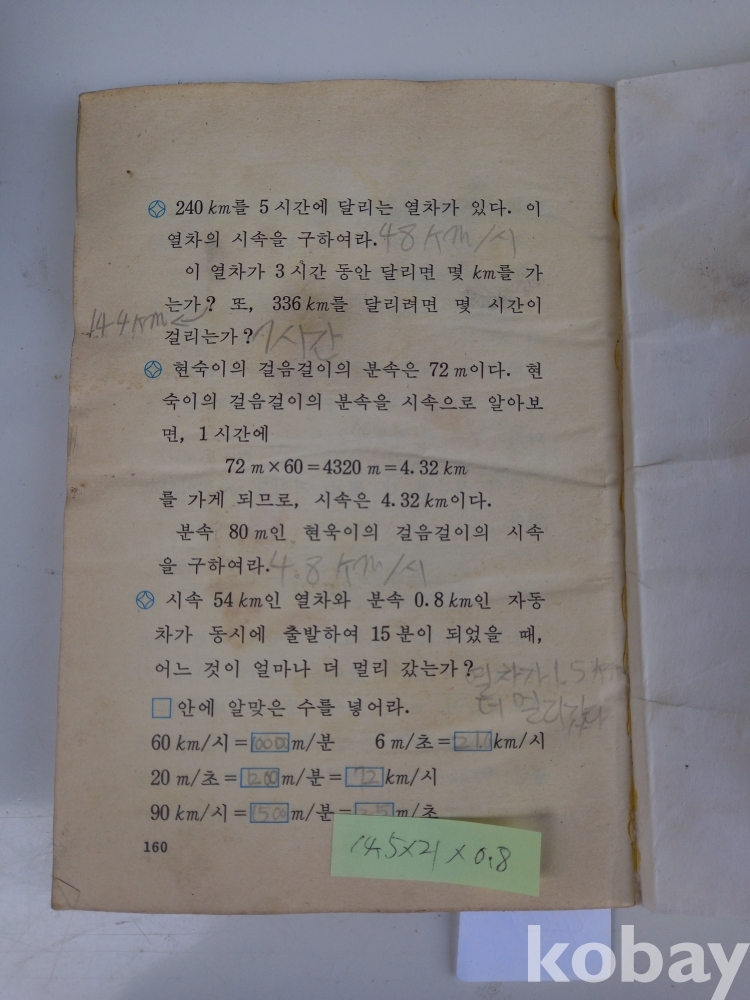 240 km를 5 시간에 달리는 열차가 있다. 이
열차의 시속을 구하여라. 48 km/시
이 열차가 3 시간 동안 달리면 몇 km를 가
는가? 또, 336 km를 달리려면 몇 시간이
144 km ←
걸리는가? 7시간
현숙이의 걸음걸이의 분속은 72 m이다. 현
숙이의 걸음걸이의 분속을 시속으로 알아보
면, 1 시간에
72 m × 60 = 4320 m = 4.32 km
를 가게 되므로, 시속은 4.32 km이다.
분속 80 m인 현욱이의 걸음걸이의 시속
을 구하여라. 4.8 km/시
시속 54 km인 열차와 분속 0.8 km인 자동
차가 동시에 출발하여 15 분이 되었을 때,
어느 것이 얼마나 더 멀리 갔는가? 열차가 1.5 km
더 멀리갔다
안에 알맞은 수를 넣어라.
60 km/시 = 1000 m/분 6 m/초 = km/시
20 m/초 = 1200 m/분 = 72 km/시
90 km/시 = 1500 m/분 = 25 m/초
160
14.5×21×0.8
kobay